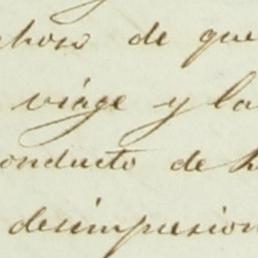 choso de que
viage y la
conducto de
desimpresion